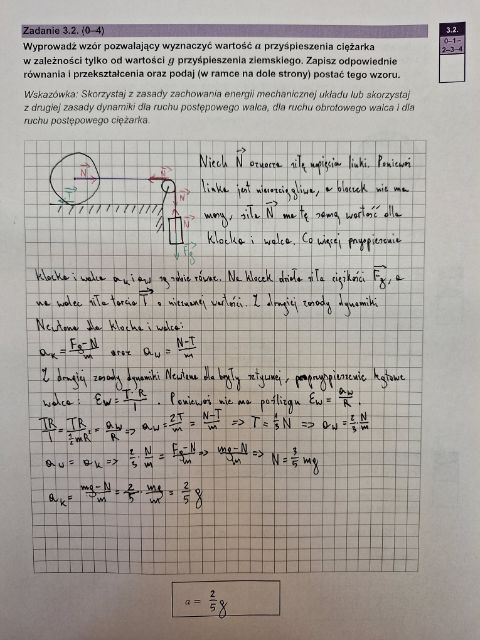 Zadanie 3.2. (0–4)
3.2.
0–1–
2–3–4
Wyprowadź wzór pozwalający wyznaczyć wartość a przyśpieszenia ciężarka
w zależności tylko od wartości g przyśpieszenia ziemskiego. Zapisz odpowiednie
równania i przekształcenia oraz podaj (w ramce na dole strony) postać tego wzoru.
Wskazówka: Skorzystaj z zasady zachowania energii mechanicznej układu lub skorzystaj
z drugiej zasady dynamiki dla ruchu postępowego walca, dla ruchu obrotowego walca i dla
ruchu postępowego ciężarka.
N N
T N
Fg
Niech N oznacza siłę napięcia linki. Ponieważ
linka jest nierozciągliwa, a bloczek nie ma
masy, siła N ma tę samą wartość dla
klocka i walca. Co więcej przyspieszenie
klocka i walca ak i aw są sobie równe. Na klocek działa siła ciężkości Fg, a
na walec siła tarcia T o nieznanej wartości. Z drugiej zasady dynamiki
Newtona dla klocka i walca:
ak = (Fg-N)/m oraz aw = (N-T)/m
Z drugiej zasady dynamiki Newtona dla bryły sztywnej, przyspieszenie kątowe
walca: Ɛw = T·R/I. Ponieważ nie ma poślizgu Ɛw = aw/R.
TR/I = TR/(½mR²) = aw/R => aw = 2T/m = (N-T)/m => T = ⅓N => aw = ⅔ N/m
aw = ak => ⅔ · N/m = (Fg-N)/m => (mg-N)/m => N = ⅗ mg
ak = (mg-N)/m = ⅖ · mg/m = ⅖ g
a = ⅖ g